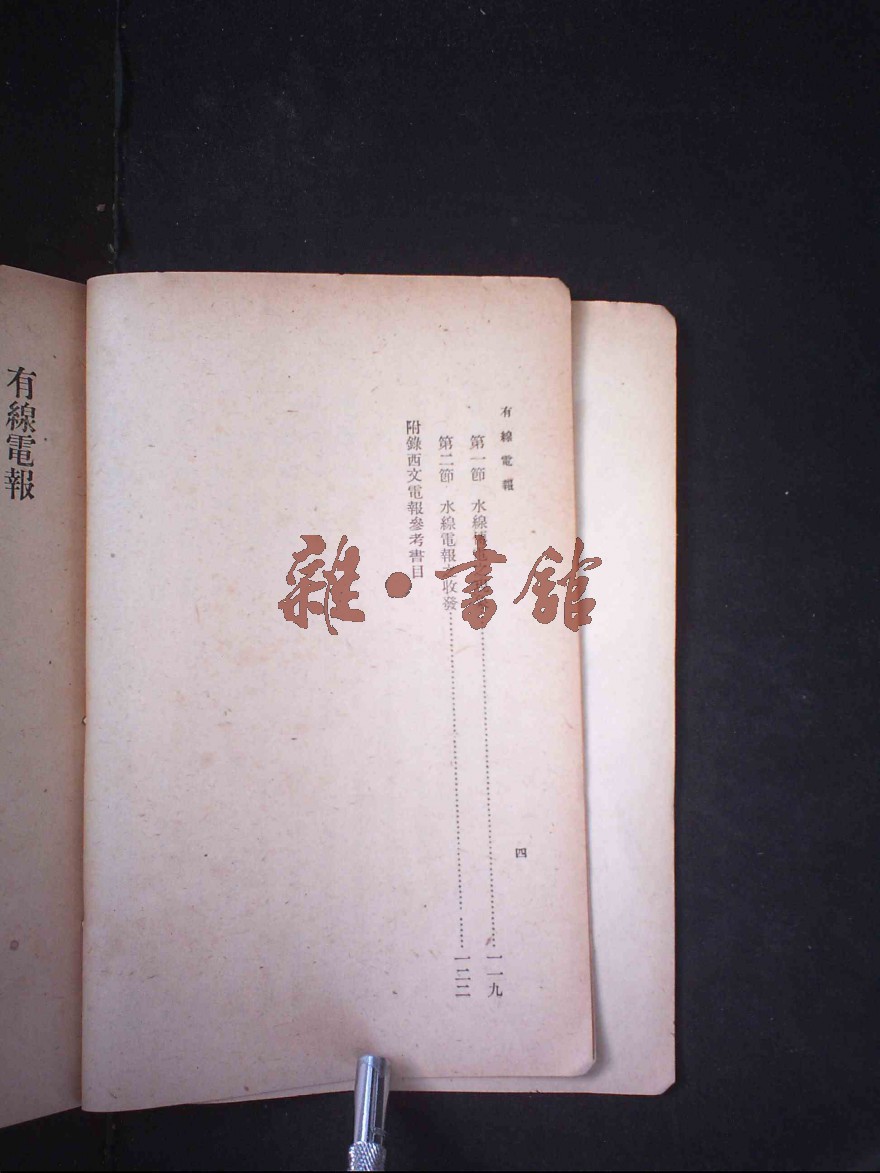 有線電報
第一節　水線……一一九
第二節　水線電報之收發……一二二
附錄西文電報參考書目
四
有線電報
雜・書館